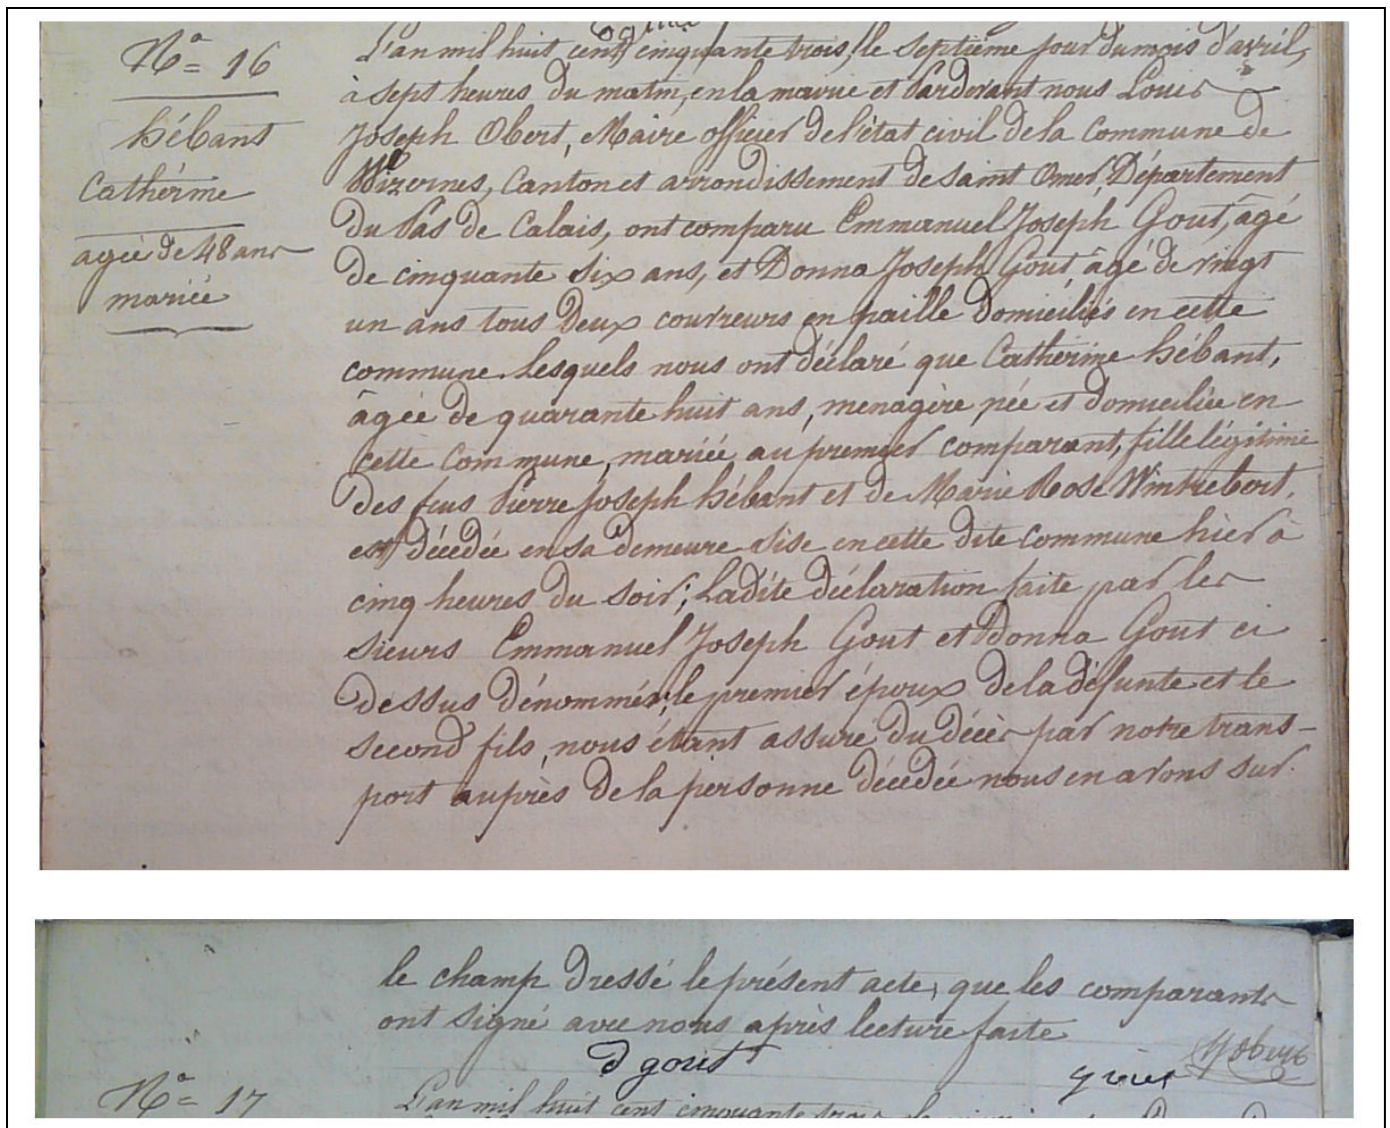 N.° = 16
hébant
Cathérine
agée de 48 ans
mariée
L'an mil huit cent cinquante trois, le septième jour du mois d'avril,
à sept heures du matin, en la mairie et Pardevant nous Louis
Joseph Obert, Maire officier de l'état civil de la Commune de
Wizernes, Canton et arrondissement de saint Omer, Département
du Pas de Calais, ont comparu Emmanuel Joseph Gout, âgé
de cinquante six ans, et Donna Joseph Gout âgé de vingt
un ans tous deux couvreurs en paille domiciliés en cette
commune. Lesquels nous ont déclaré que Catherine hébant,
âgée de quarante huit ans, menagère née et domiciliée en
cette Commune, mariée au premier comparant, fille légitime
des feus Pierre Joseph hébant et de Marie Rose Wintrebert,
est décédée en sa demeure sise en cette dite commune hier à
cinq heures du soir; Ladite déclaration faite par les
sieurs Emmanuel Joseph Gout et Donna Gout ci
dessus dénommés, le premier époux de la défunte et le
second fils, nous étant assuré du décès par notre trans-
port auprès de la personne décédée nous en avons sur
le champ dressé le présent acte, que les comparants
ont signé avec nous après lecture faite
d gout
N.° = 17
L'an mil huit cent cinquante trois